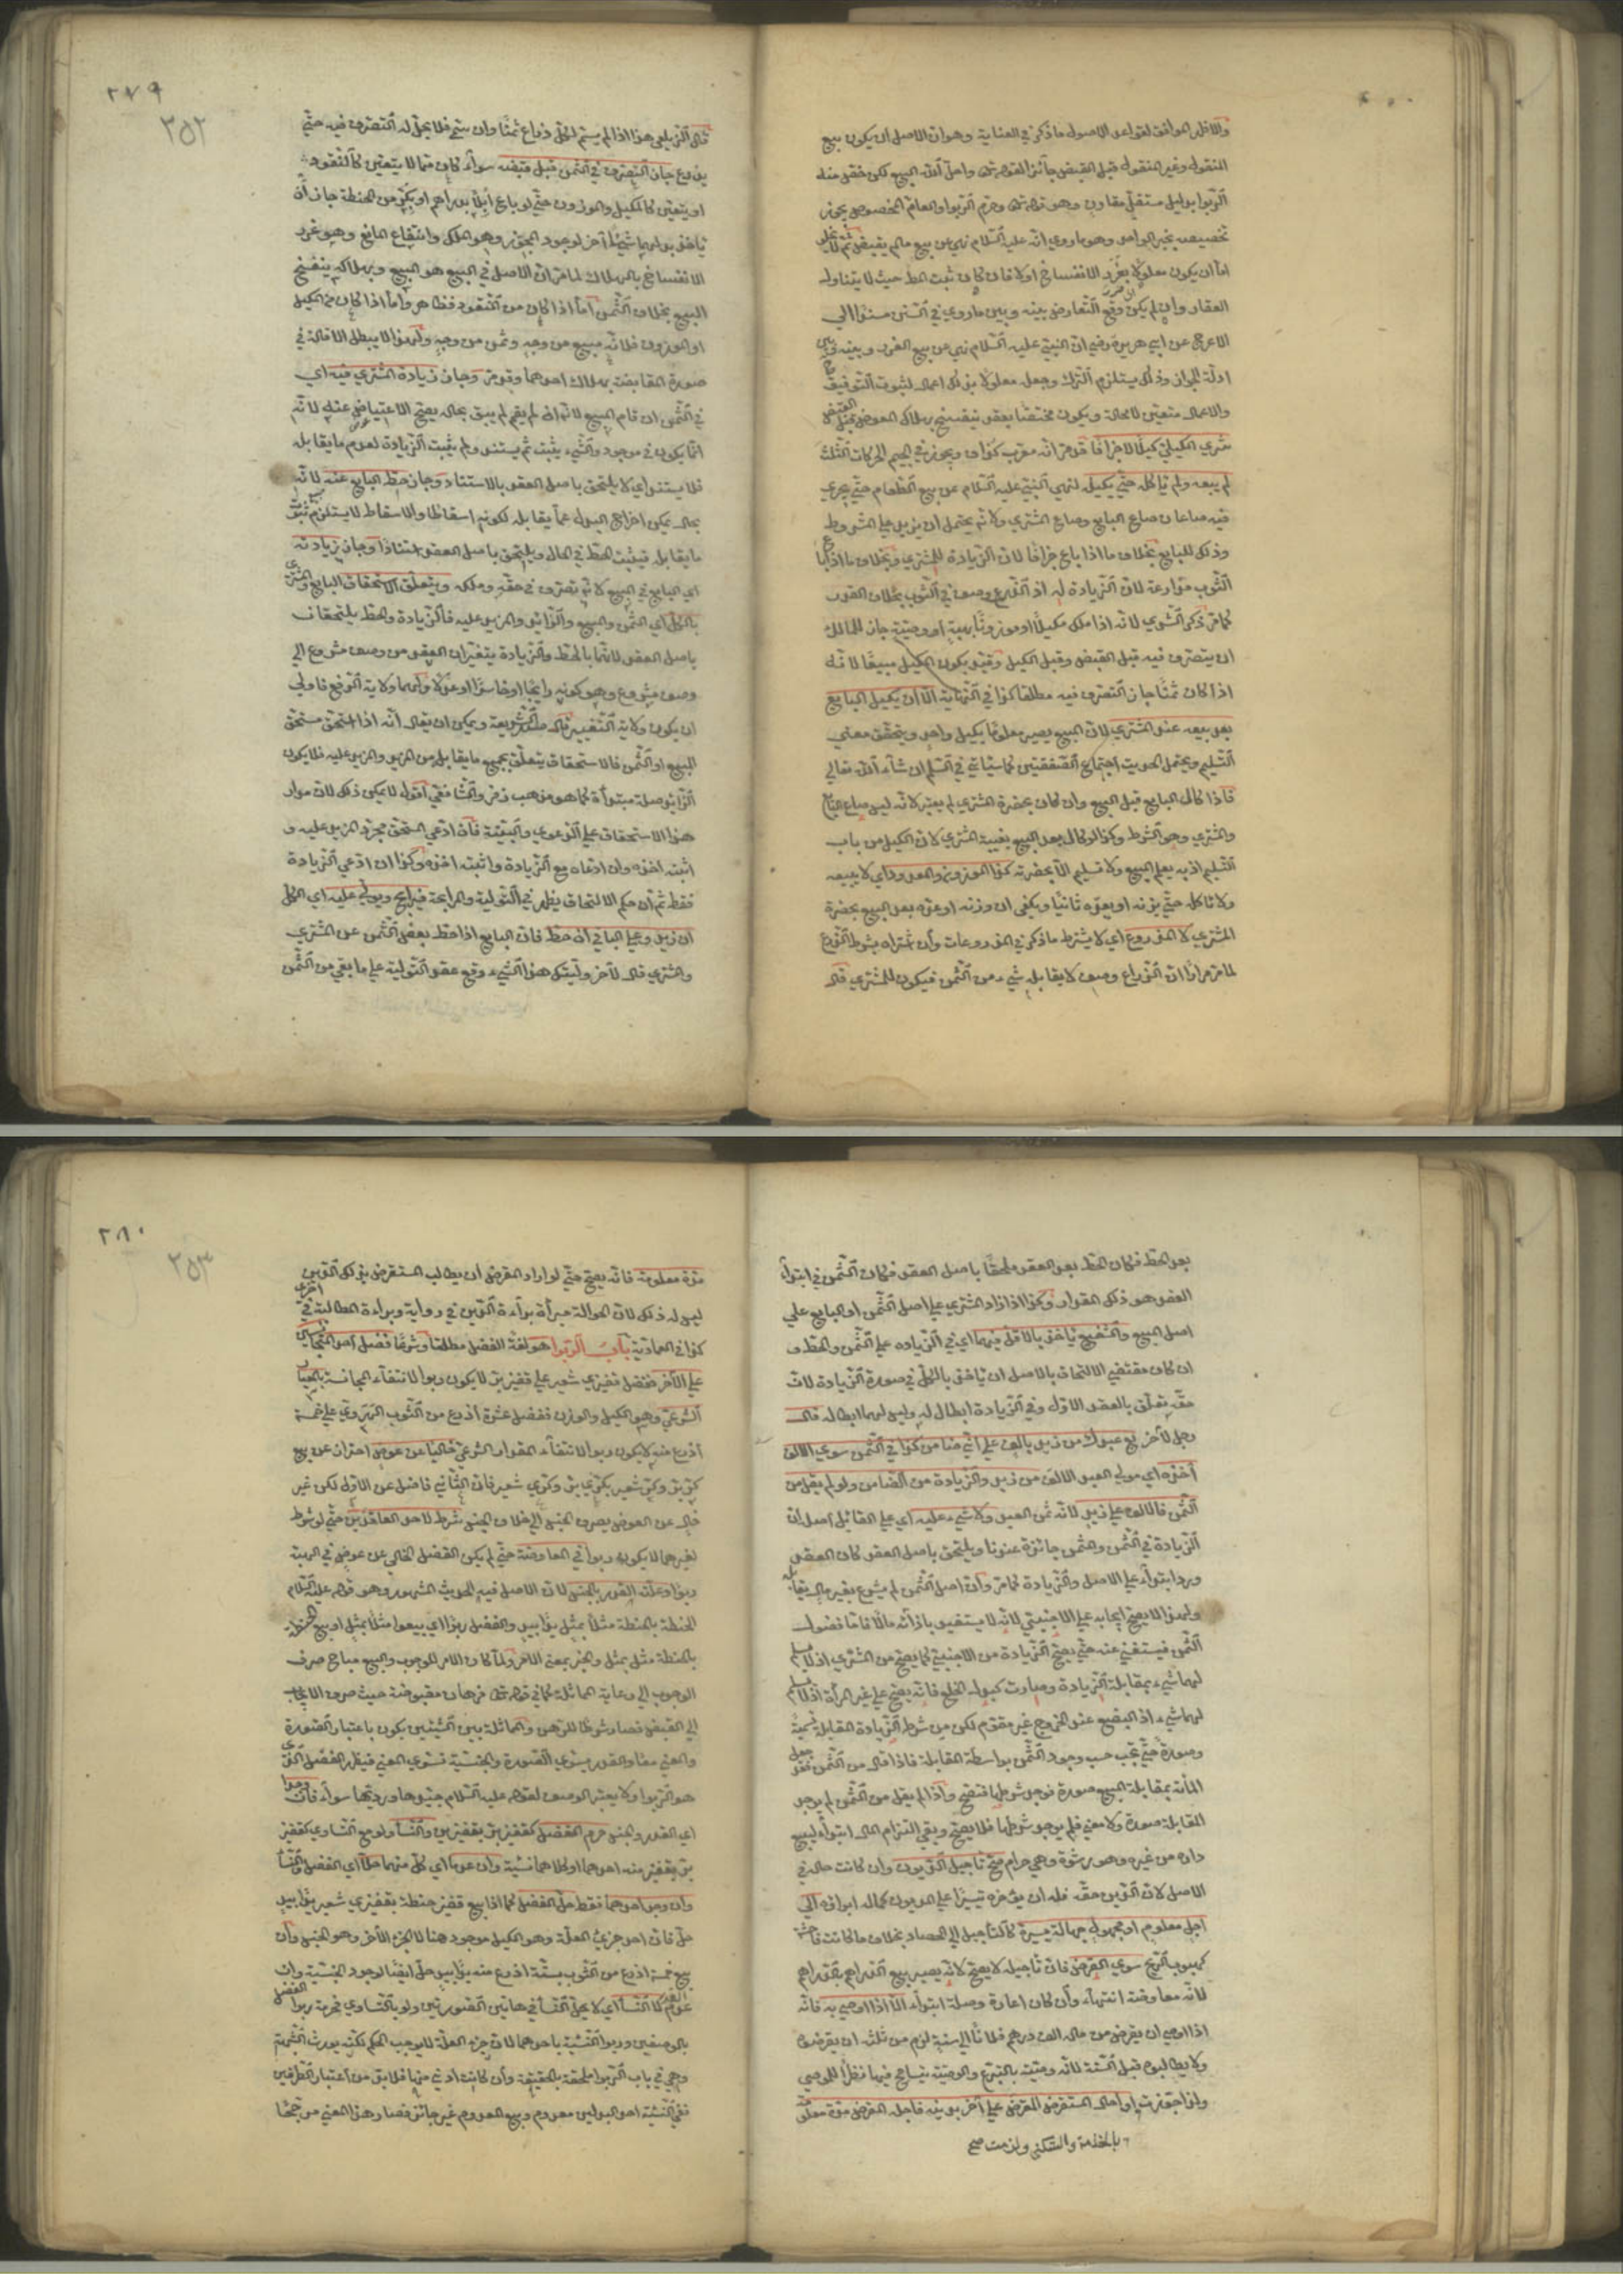 والاظهر الموافق لقواعد الاصول ما ذكر في العناية وهو ان الاصل ان يكون بيع
المنقول وغير المنقول قبل القبض جائزا لقوله تعالى واحل الله البيع لكن خص منه
الربوا بدليل مستقل مقارن وهو قوله تعالى وحرم الربوا والعام المخصوص يجوز
تخصيصه بخبر الواحد وهو ما روي انه عليه السلام نهى عن بيع ما لم يقبض ثم لا يخلو
اما ان يكون معلولا بغرر الانفساخ اولا فان كان ثبت المط حيث لا يتناول
العقار وان لم يكن وقع التعارض بينه وبين ما روي في السنن مسندا الى
الاعرج عن ابي هريرة رضي ان النبي عليه السلام نهى عن بيع الغرر وبينه وبين
ادلة الجواز وذلك يستلزم الترك وجعله معلولا بذلك اعمال لثبوت التوفيق ح
والاعمال متعين لا محالة ويكون مختصا بعقد ينفسخ بهلاك العوض قبل القبض
شرى الكيلي كيلا لا جزافا قد مر انه معرب كزاف ويجوز في الجيم الحركات الثلث
لم يبعه ولم يأكله حتى يكيله لنهي النبي عليه السلام عن بيع الطعام حتى يجري
فيه صاعان صاع البايع وصاع المشتري ولانه يحتمل ان يزيد على المشروط
وذلك للبايع بخلاف ما اذا باع جزافا لان الزيادة للمشتري وبخلاف ما اذا باع
الثوب مذارعة لان الزيادة له اذ الذرع وصف في الثوب بخلاف القدر
كما مر ذكر الشرى لانه اذا ملك مكيلا او موزونا بهبة او وصية جاز للمالك
ان يتصرف فيه قبل القبض وقبل الكيل وقيد بكون المكيل مبيعا لانه
اذا كان ثمنا جاز التصرف فيه مطلقا كذا في النهاية الا ان يكيل البايع
بعد بيعه عند المشتري لان المبيع يصير معلوما بكيل واحد ويتحقق معنى
التسليم ومحمل الحديث اجتماع الصفقتين كما سيأتي في السلم ان شاء الله تعالى
فاذا كال البايع قبل البيع وان كان بحضرة المشتري لم يعتبر لانه ليس صاع البايع
والمشتري وهو الشرط وكذا لو كال بعد البيع بغيبة المشتري لان الكيل من باب
التسليم اذ به يعلم المبيع ولا تسليم الا بحضرته كذا الموزون والمعدود اي لا يبيعه
ولا يأكله حتى يزنه او يعده ثانيا ويكفى ان وزنه او عده بعد البيع بحضرة
المشتري لا المذروع اي لا يشترط ما ذكر في المذروعات وان شراه بشرط الذرع
لما مر مرارا ان الذراع وصف لا يقابله شيء من الثمن فيكون للمشتري قال
٢٧٩
٢٥٢
قال الزيلعي هذا اذا لم يسم لكل ذراع ثمنا وان سمى فلا يحل له التصرف فيه حتى
يذرع جاز التصرف في الثمن قبل قبضه سواء كان مما لا يتعين كالنقود
او يتعين كالمكيل والموزون حتى لو باع ابلا بدراهم او بكر من الحنطة جاز ان
يأخذ بدلهما شيئا آخر لوجود المجوز وهو الملك وانتفاء المانع وهو غرر
الانفساخ بالهلاك لما مر ان الاصل في البيع هو المبيع وبهلاكه ينفسخ
البيع بخلاف الثمن اما اذا كان من النقود فظاهر واما اذا كان من المكيل
او الموزون فلانه مبيع من وجه وثمن من وجه ولهذا لا يبطل الاقالة في
صورة المقايضة بهلاك احدهما وقد مر وجاز زيادة المشتري فيه اي
في الثمن ان قام المبيع لانه ان لم يقم لم يبق بحال يصح الاعتياض عنه لانه
انما يكون في موجود والشيء يثبت ثم يستند ولم يثبت الزيادة لعدم ما يقابله
فلا يستند اي لا يلتحق باصل العقد بالاستناد وجاز حط البايع عنه لانه
بحال يمكن اخراج البدل عما يقابله لكونه اسقاطا والاسقاط لا يستلزم ثبوت
ما يقابله فيثبت الحط في الحال ويلتحق باصل العقد استنادا وجاز زيادته
اي البايع في المبيع لانه تصرف في حقه وملكه ويتعلق الاستحقاق البايع والمشتري
بالكل اي الثمن والمبيع والزائد والمزيد عليه فالزيادة والحط يلتحقان
باصل العقد لانهما بالحط والزيادة يتغيران العقد من وصف مشروع الى
وصف مشروع وهو كونه رابحا او خاسرا او عدلا ولهما ولاية الرفع فاولى
ان يكون ولاية التغيير قال صدر الشريعة ويمكن ان يقال انه اذا استحق مستحق
المبيع او الثمن فالاستحقاق يتعلق بجميع ما يقابله من المزيد والمزيد عليه فلا يكون
الزائد صلة مبتدأة كما هو مذهب زفر والشافعي اقول لا يمكن ذلك لان مدار
هذا الاستحقاق على الدعوى والبينة فان ادعى المستحق مجرد المزيد عليه و
اثبته اخذه وان ادعاه مع الزيادة واثبته اخذه وكذا ان ادعى الزيادة
فقط ثم ان حكم الالتحاق يظهر في التولية والمرابحة فيرابح ويولي عليه اي الكل
ان زيد وعلى الباقي ان حط فان البايع اذا حط بعض الثمن عن المشتري
والمشتري قال لآخر وليتك هذا الشيء وقع عقد التولية على ما بقي من الثمن
بعد الحط فكان الحط بعد العقد ملحقا باصل العقد فكان الثمن في ابتداء
العقد هو ذلك القدر وكذا اذا زاد المشتري على اصل الثمن او البايع على
اصل المبيع والشفيع يأخذ بالاقل فيهما اي في الزيادة على الثمن والحط و
ان كان مقتضى الالتحاق بالاصل ان يأخذ بالكل في صورة الزيادة لان
حقه تعلق بالعقد الاول وفي الزيادة ابطال له وليس لهما ابطاله قال
رجل لآخر بع عبدك من زيد بالف على اني ضامن كذا في الثمن سوى الالف
اخذه اي مولى العبد الالف من زيد والزيادة من الضامن ولو لم يقل من
الثمن فالالف على زيد لانه ثمن العبد ولا شيء عليه اي على القائل اصله ان
الزيادة في الثمن والمثمن جائزة عندنا ويلتحق باصل العقد كان العقد
ورد ابتداء على الاصل والزيادة كما مر وان اصل الثمن لم يشرع بغير مال يقابله
ولهذا لا يصح ايجابه على الاجنبي لانه لا يستفيد بازائه مالا فاما فضول
الثمن فيستغني عنه حتى يصح الزيادة من الاجنبي كما يصح من المشتري اذ لا يسلم
لهما شيء بمقابلة الزيادة وصارت كبدل الخلع فانه يصح على غير المرأة اذ لا يسلم
لهما شيء اذ البضع عند الخروج غير متقوم لكن من شرط الزيادة المقابلة تسمية
وصورة حتى تجب حسب وجود الثمن بواسطة المقابلة فاذا قال من الثمن فقد جعل
المائة بمقابلة المبيع صورة فوجد شرطها فتصح واذا لم يقل من الثمن لم يوجد
المقابلة صورة ولا معنى فلم يوجد شرطها فلا يصح وبقي التزام المال ابتداء لبيع
داره من غيره وهو رشوة وهي حرام صح تأجيل الديون وان كانت حالة في
الاصل لان الدين حقه فله ان يؤخره تيسيرا على المديون كما له ابراؤه الى
اجل معلوم او مجهول جهالة يسيرة كالتأجيل الى الحصاد بخلاف ما كانت فاحشة
كهبوب الريح سوى القرض فان تأجيله لا يصح لانه يصير بيع الدراهم بالدراهم
لانه معاوضة انتهاء وان كان اعارة وصلة ابتداء الا اذا اوصى به فانه
اذا اوصى ان يقرض من ماله الف درهم فلانا الى سنة لزم من ثلثه ان يقرضوه
ولا يطالبوه قبل السنة لانه وصية بالتبرع والوصية يتسامح فيها نظرا للموصي
ولذا جوزت او احال المستقرض المقرض على آخر بدينه فاجل المقرض مدة معلومة
بالخدمة والسكنى ولزمت صح
٢٨٠
٢٥٣
مدة معلومة فانه يصح حتى لو اراد المقرض ان يطالب المستقرض بذلك الدين
ليس له ذلك لان الحوالة مبرأة براءة الدين في رواية وبراءة المطالبة في اخرى
كذا في العمادية باب الربوا هو لغة الفضل مطلقا وشرعا فضل احد المتجانسين
على الآخر ففضل قفيزي شعير على قفيز بر لا يكون ربوا لانتفاء المجانسة بالمعيار
الشرعي وهو الكيل والوزن ففضل عشرة اذرع من الثوب الهروي على خمسة
اذرع منه لا يكون ربوا لانتفاء المقدار الشرعي خاليا عن عوض احتراز عن بيع
كر بر وكر شعير بكري بر وكري شعير فان الثاني فاضل عن الاول لكن غير
خال عن العوض بصرف الجنس الى خلاف الجنس شرط لاحد العاقدين حتى لو شرط
لغيرهما لا يكون ربوا في المعاوضة حتى لم يكن الفضل الخالي عن عوض في الهبة
ربوا وعلته القدر بالجنس لان الاصل فيه الحديث المشهور وهو قوله عليه السلام
الحنطة بالحنطة مثلا بمثل يدا بيد والفضل ربوا اي بيعوا مثلا بمثل او بيع الحنطة
بالحنطة مثل بمثل والخبر بمعنى الامر ولما كان الامر للوجوب والبيع مباح صرف
الوجوب الى رعاية المماثلة كما في قوله تعالى فرهان مقبوضة حيث صرف الايجاب
الى القبض فصار شرطا للرهن والمماثلة بين الشيئين يكون باعتبار الصورة
والمعنى معا والقدر يسوي الصورة والجنسية تسوي المعنى فيظهر الفضل الذي
هو الربوا ولا يعتبر الوصف لقوله عليه السلام جيدها ورديئها سواء فان وجدا
اي القدر والجنس حرم الفضل كقفيز بر بقفيزين والنسأ ولو مع التساوي كقفيز
بر بقفيز منه احدهما او كلاهما نسيئة وان عدما اي كل منهما حلا اي الفضل والنسأ
وان وجد احدهما فقط حل الفضل كما اذا بيع قفيز حنطة بقفيزي شعير يدا بيد
حل فان احد جزئي العلة وهو الكيل موجود هنا لا الجزء الآخر وهو الجنس وان
بيع خمسة اذرع من الثوب بستة اذرع منه يدا بيد حل ايضا لوجود الجنسية وان
عدم القدر لا النسأ اي لا يحل النسأ في هاتين الصورتين ولو بالتساوي فحرمة ربوا الفضل
بالوصفين وربوا النسيئة باحدهما لان جزء العلة لا يوجب الحكم لكنه يورث الشبهة
وهي في باب الربوا ملحقة بالحقيقة وان كانت ادنى منها فلا بد من اعتبار الطرفين
ففي النسيئة احد البدلين معدوم وبيع المعدوم غير جائز فصار هذا المعنى مرجحا